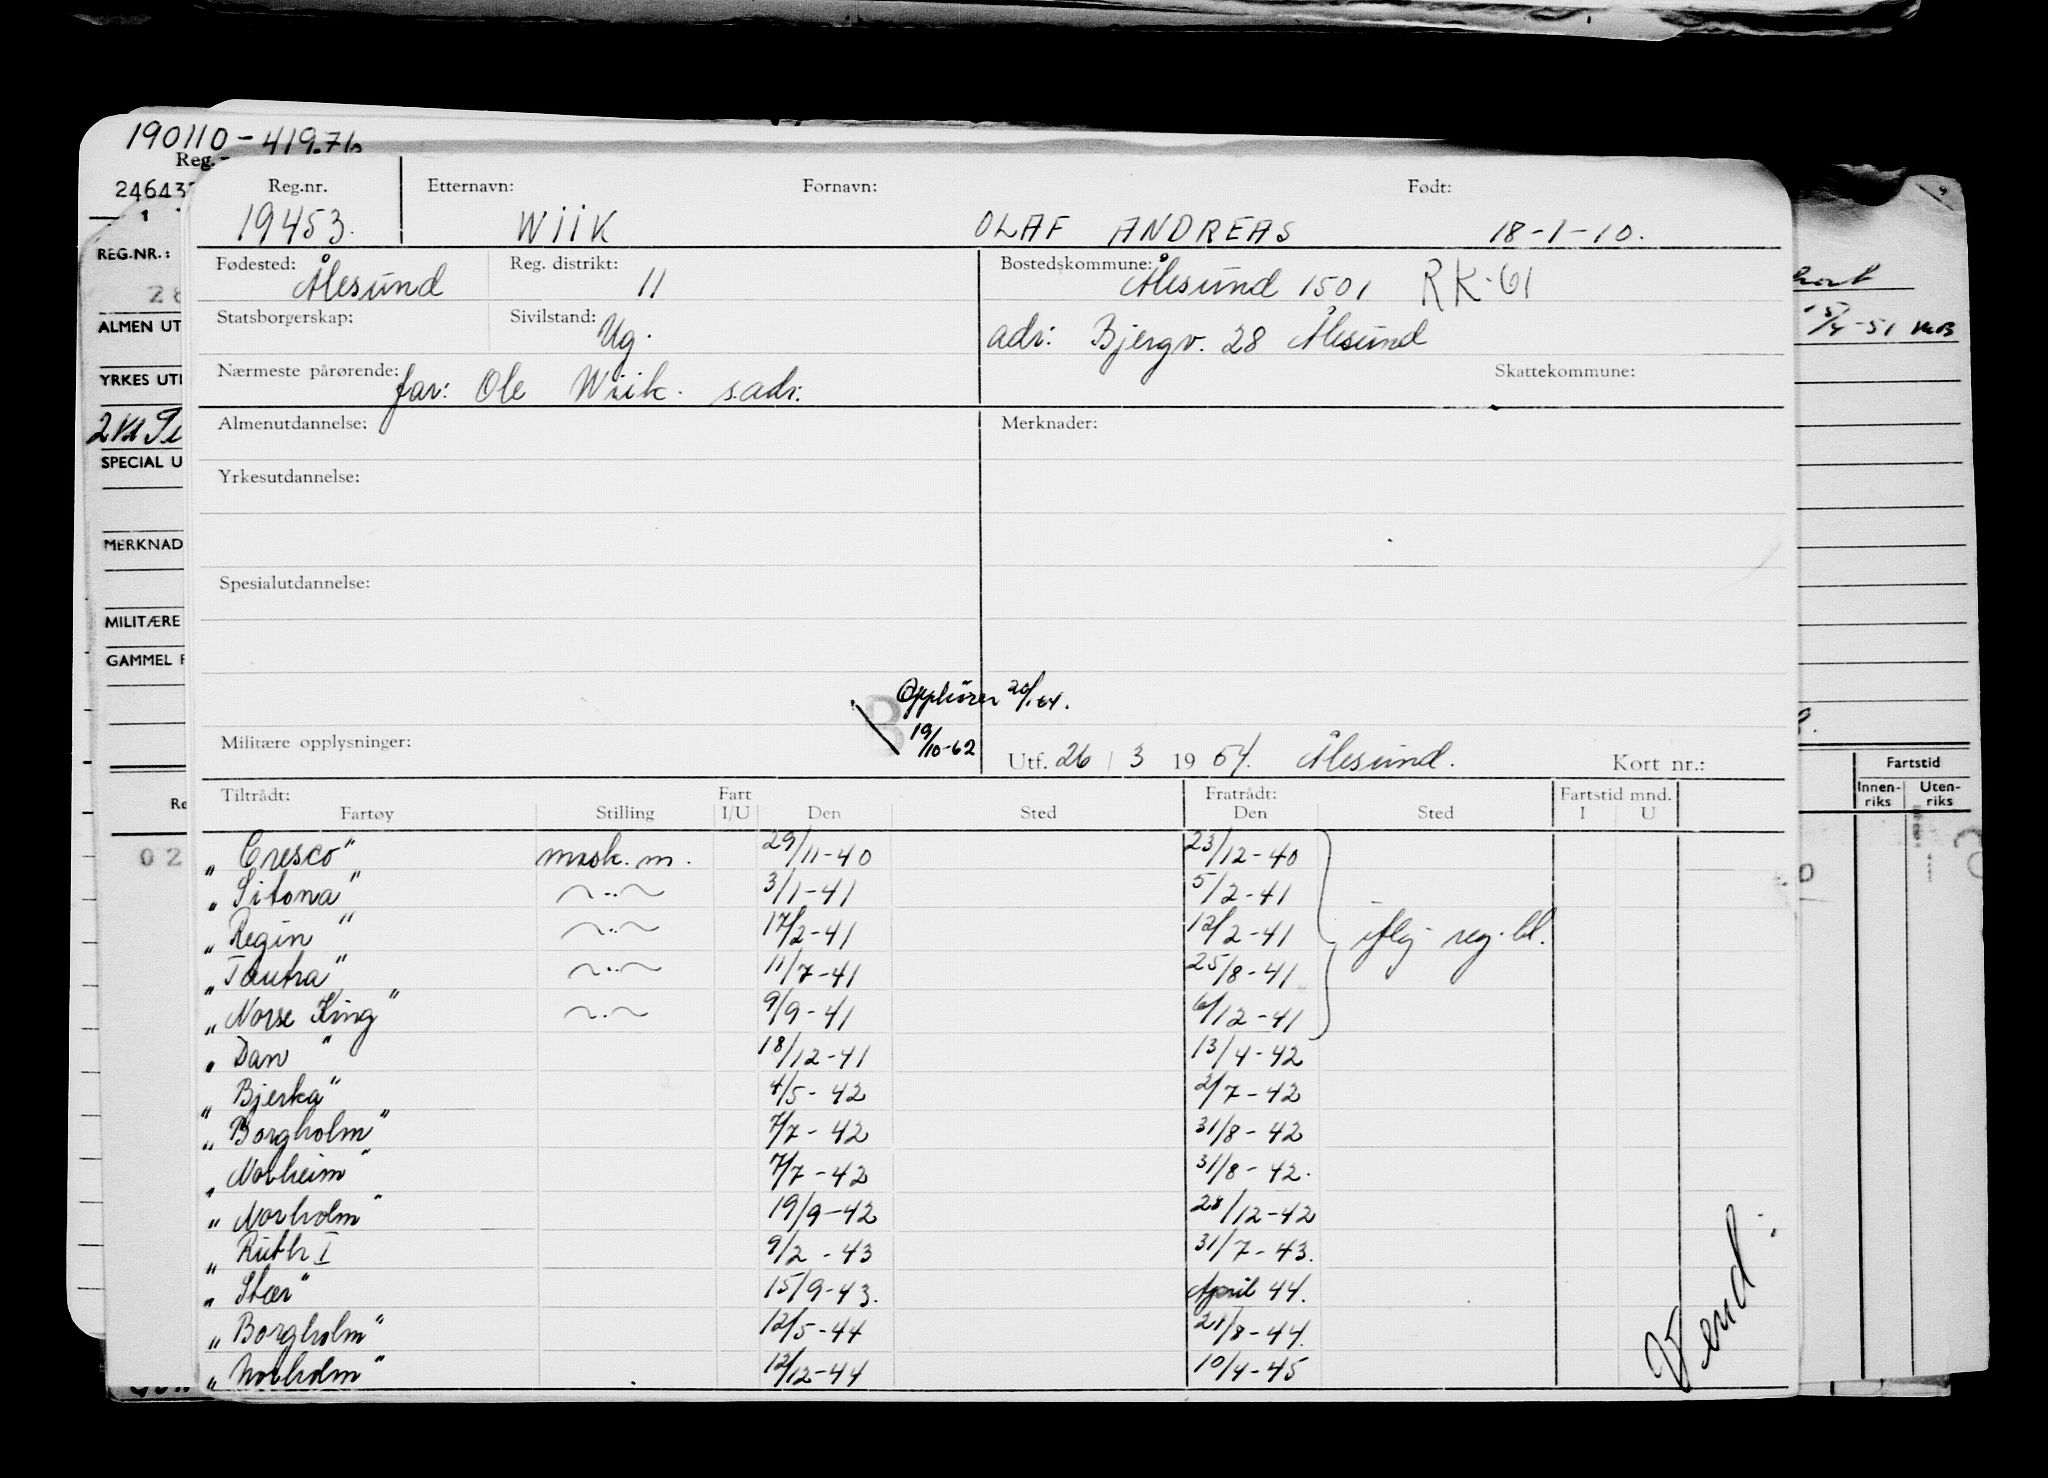 190110-419.76
Reg.-
246437
REG.NR.:
28
ALMEN UT
YRKES UTI
2 kl
SPECIAL U
MERKNAD
MILITÆRE
GAMMEL F
02
Reg.nr. Etternavn: Fornavn: Født:
19453. WIIK OLAF ANDREAS 18-1-10.
Fødested: Ålesund Reg. distrikt: 11 Bostedskommune: Ålesund 1501 RK-61
Statsborgerskap: Sivilstand: Ug. adr: Bjergv. 28 Ålesund
Nærmeste pårørende: far: Ole Wiik. s.adr: Skattekommune:
Almenutdannelse: Merknader:
Yrkesutdannelse:
Spesialutdannelse:
Opphører 20/1-64.
B 19/10-62
Militære opplysninger: Utf. 26/3 1964. Ålesund. Kort nr.:
Tiltrådt: Fart Fratrådt: Fartstid mnd.
Fartøy Stilling I/U Den Sted Den Sted I U
"Cresco" mask.m. 29/11-40 23/12-40
"Sitona" ~..~ 3/1-41 5/2-41
"Regin" ~..~ 17/2-41 12/2-41 iflg reg.bl.
"Tautra" ~..~ 11/7-41 25/8-41
"Norse King" ~..~ 9/9-41 6/12-41
"Dan" 18/12-41 13/4-42
"Bjerka" 4/5-42 2/7-42
"Borgholm" 7/7-42 31/8-42
"Norheim" 7/7-42 31/8-42.
"Norholm" 19/9-42 28/12-42
"Ruth I 9/2-43 31/7-43.
"Stær" 15/9-43. April 44.
"Borgholm" 12/5-44 21/8-44.
"Norholm" 12/12-44 10/4-45
Vend.
15/4-51
Fartstid
Innen-riks Uten-riks